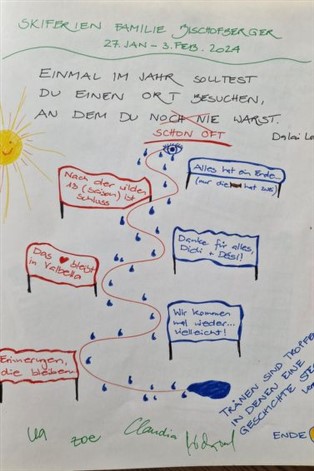 SKIFERIEN FAMILIE BISCHOFBERGER
27. JAN - 3. FEB. 2024
EINMAL IM JAHR SOLLTEST
DU EINEN ORT BESUCHEN,
AN DEM DU NOCH NIE WARST.
SCHON OFT
Dalai La
Nach der wilden
13 (Saison) ist
Schluss
Alles hat ein Ende...
(nur die hat zwei)
Das ♥ bleibt
in Valbella
Danke für alles,
Didi + Dési!
Wir kommen
mal wieder...
vielleicht!
Erinnerungen,
die bleiben
TRÄNEN SIND TROPFEN
IN DENEN EINE
GESCHICHTE STE
Lea Zoe Claudia
ENDE